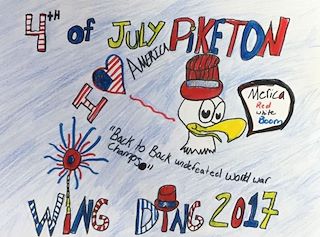 4TH of JULY PiKETON
AMERICA
I
Merica
Red
white
Boom
"Back to Back undefeated World war
Champs"
WING DING 2017